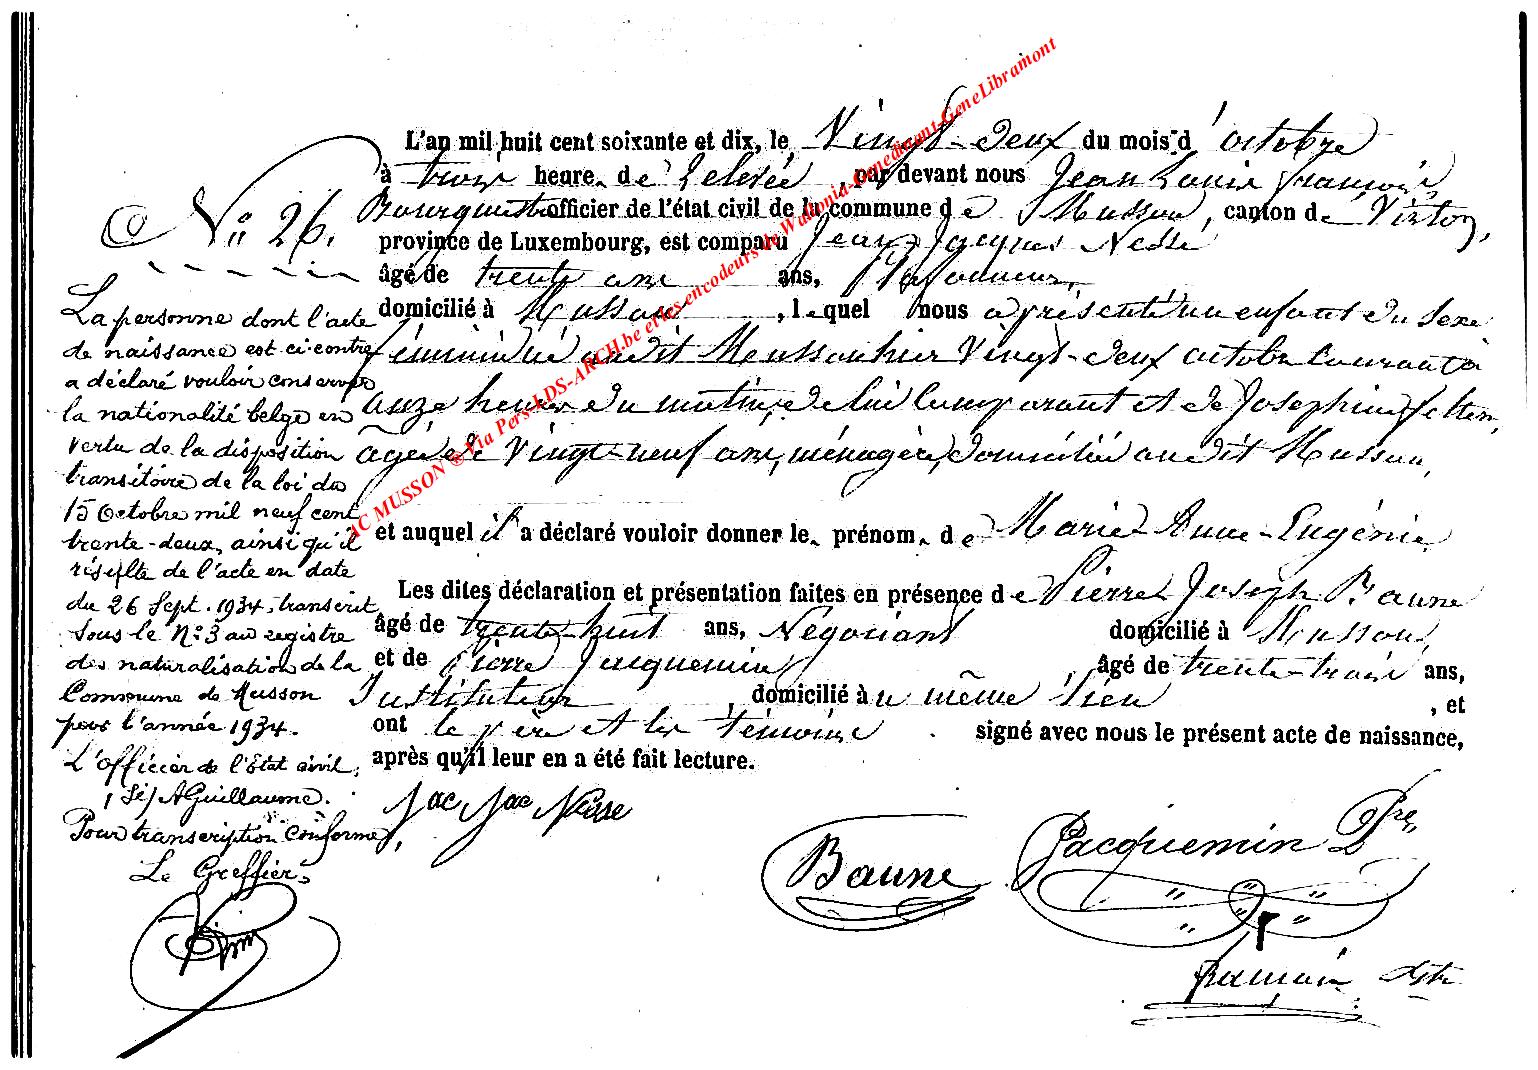 N° 26.
La personne dont l'acte
de naissance est ci-contre
a déclaré vouloir conserver
la nationalité belge en
vertu de la disposition
transitoire de la loi du
15 Octobre mil neuf cent
trente-deux, ainsi qu'il
résulte de l'acte en date
du 26 Sept. 1934, transcrit
sous le N° 3 au registre
des naturalisations de la
Commune de Musson
pour l'année 1934.
L'officier de l'Etat civil,
(Sé) A Guillaume.
Pour transcription conforme,
Le Greffier,
L'an mil huit cent soixante et dix, le Vingt-deux du mois d'octobre
à trois heure de relevée, par devant nous Jean Louis François
officier de l'état civil de la commune de Musson, canton de Virton,
province de Luxembourg, est comparu Jean Jacques
âgé de trente ans ans, Plafonneur,
domicilié à Musson, lequel nous a présenté un enfant du sexe
féminin né audit Musson hier Vingt-deux octobre courant à
onze heures du matin, de lui comparant et de Joséphine
âgée de Vingt-neuf ans, ménagère, domiciliée audit Musson,
et auquel il a déclaré vouloir donner le prénom de Marie-Anne-Eugénie
Les dites déclaration et présentation faites en présence de Pierre Joseph Baune
âgé de trente-huit ans, Négociant domicilié à Musson,
et de Pierre Jacquemin, âgé de trente-trois ans,
Instituteur, domicilié au même lieu, et
ont le père et les témoins signé avec nous le présent acte de naissance,
après qu'il leur en a été fait lecture.
Jac Jac
Baune
Jacquemin Pre
AC MUSSON @ Via Pers-LDS-ARCH.be et les encodeurs de Wallonia-Genedinant-GeneLibramont